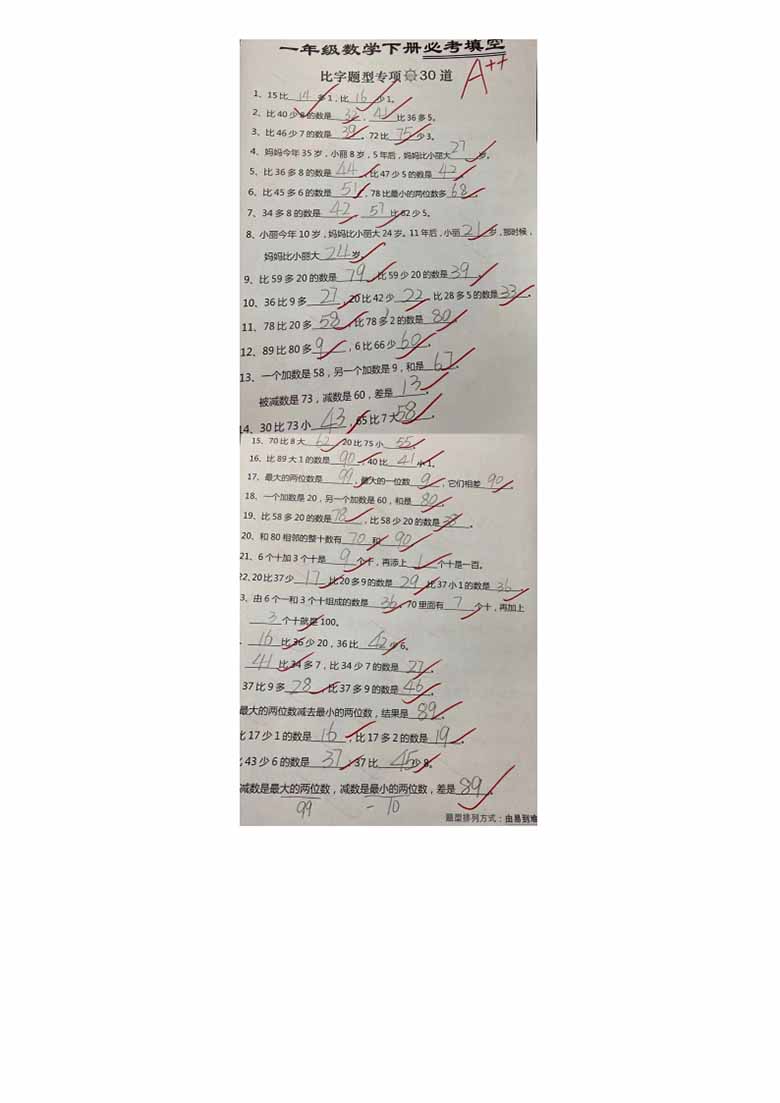 一年级数学下册必考填空
比字题型专项30道
A++
1、15比 14 多1，比 16 少1。
2、比40少8的数是 32 ， 41 比36多5。
3、比46少7的数是 39 。72比 75 少3。
4、妈妈今年35岁，小丽8岁，5年后，妈妈比小丽大 27 岁。
5、比36多8的数是 44 ，比47少5的数是 42 。
6、比45多6的数是 51 ，78比最小的两位数多 68 。
7、34多8的数是 42 57 比62少5。
8、小丽今年10岁，妈妈比小丽大24岁。11年后，小丽 21 岁，那时候，
妈妈比小丽大 24 岁。
9、比59多20的数是 79 ，比59少20的数是 39 。
10、36比9多 27 ，20比42少 22 ，比28多5的数是 33 。
11、78比20多 58 ，比78多2的数是 80 。
12、89比80多 9 ，6比66少 60 。
13、一个加数是58，另一个加数是9，和是 67 。
被减数是73，减数是60，差是 13 。
14、30比73小 43 ，65比7大 58 。
15、70比8大 62 20比75小 55 。
16、比89大1的数是 90 ，40比 41 小1。
17、最大的两位数是 99 ，最大的一位数 9 ，它们相差 90 。
18、一个加数是20，另一个加数是60，和是 80 。
19、比58多20的数是 78 ，比58少20的数是 38 。
20、和80相邻的整十数有 70 和 90
21、6个十加3个十是 9 个十，再添上 1 个十是一百。
22、20比37少 17 比20多9的数是 29 比37小1的数是 36 。
3、由6个一和3个十组成的数是 36 ，70里面有 7 个十，再加上
3 个十就是100。
、 16 比36少20，36比 42 少6。
41 比34多7，比34少7的数是 27 。
37比9多 28 ，比37多9的数是 46 。
最大的两位数减去最小的两位数，结果是 89 。
比17少1的数是 16 ，比17多2的数是 19 。
比43少6的数是 37 ，37比 45 少8。
减数是最大的两位数，减数是最小的两位数，差是 89 。
99 - 10
题型排列方式：由易到难